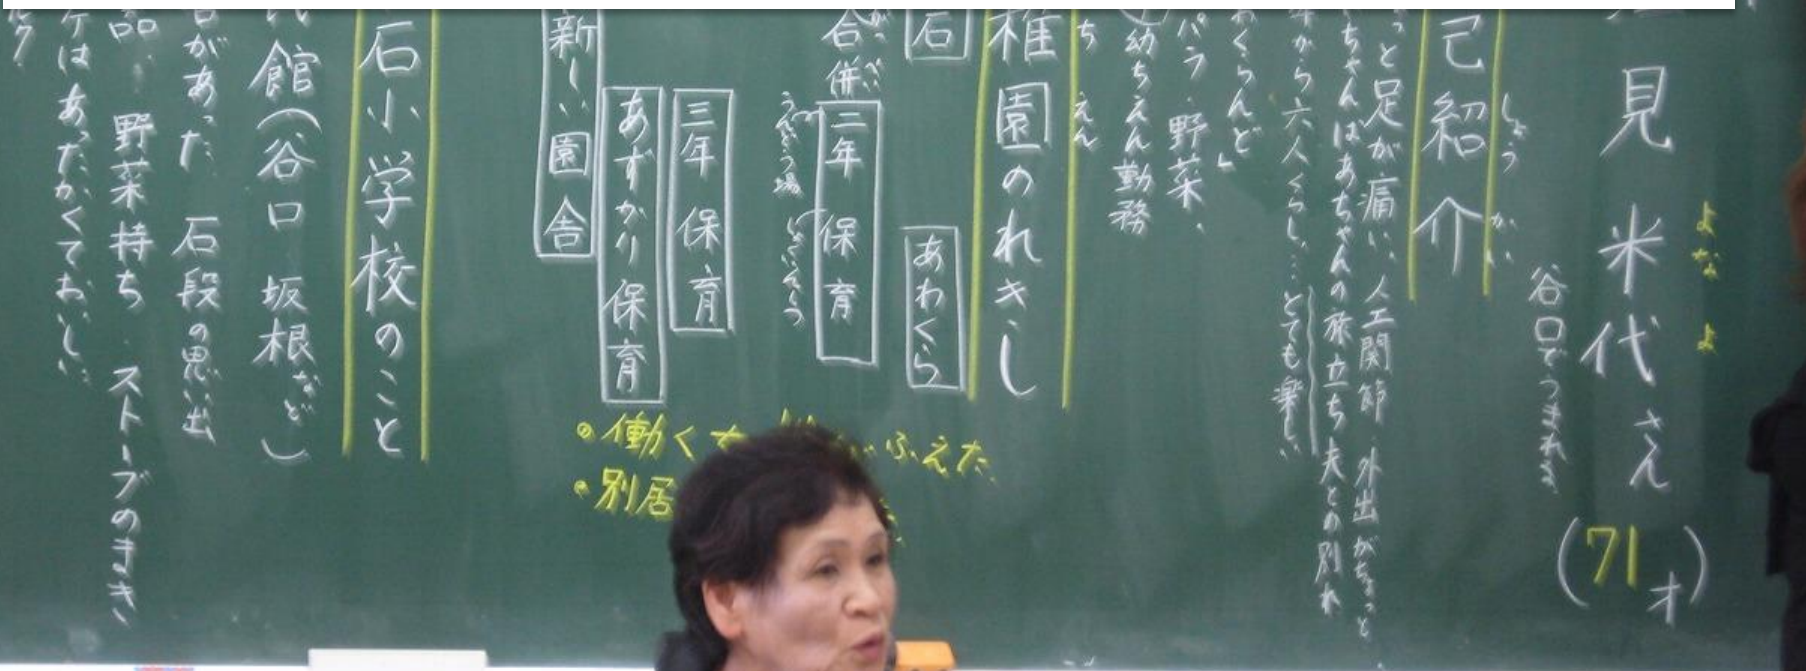 見 米代さん
よなよ
(71才)
谷口でうまれる
己紹介
しょうかい
っと足が痛い、人工関節 外出がちょっと
ちゃんはあちゃんの旅立ち 夫との別れ
から六人くらし…とても楽しい
くらんど」
バラ・野菜、
幼ちえん勤務
ち えん
稚園のれきし
石 あわくら
がっぺい
合併 二年保育
三年保育
あずかり保育
新しい園舎
・働く ふえた
・別居
石小学校のこと
館(谷口 坂根など)
があった 石段の思い出
品 野菜持ち ストーブのまき
はあったかくておいしい